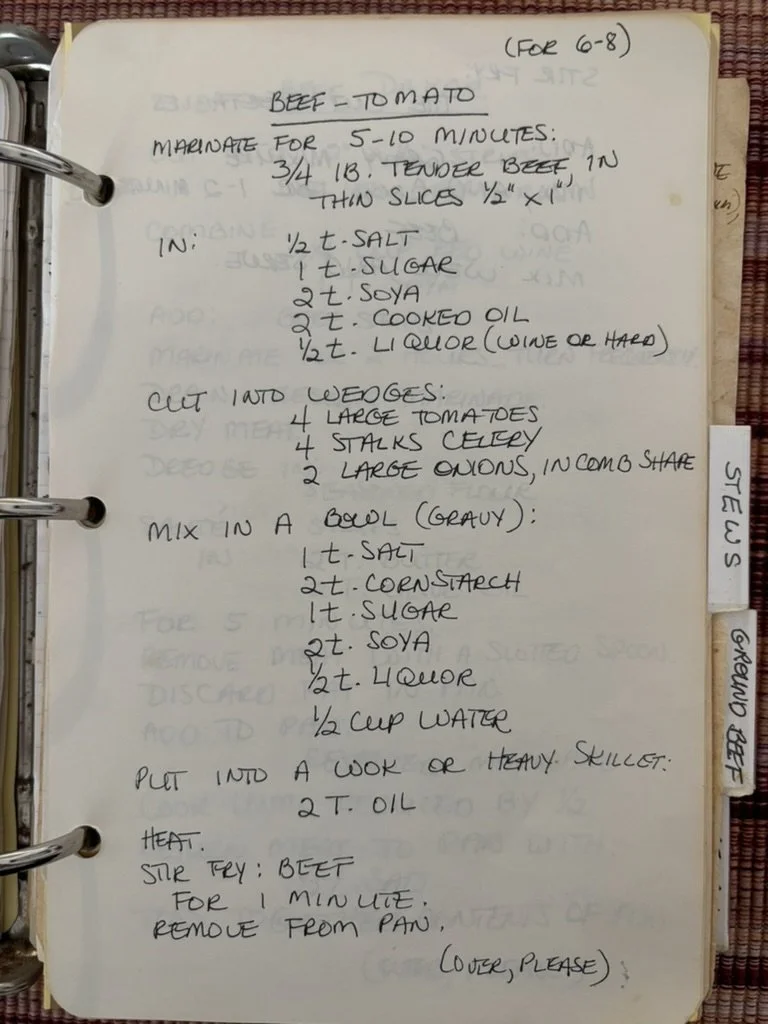 (FOR 6-8)
BEEF-TOMATO
MARINATE FOR 5-10 MINUTES:
3/4 lB. TENDER BEEF, IN
THIN SLICES 1/2" x 1"
IN: 1/2 t. SALT
1 t. SUGAR
2 t. SOYA
2 t. COOKED OIL
1/2 t. LIQUOR (WINE OR HARD)
CUT INTO WEDGES:
4 LARGE TOMATOES
4 STALKS CELERY
2 LARGE ONIONS, IN COMB SHAPE
MIX IN A BOWL (GRAVY):
1 t. SALT
2 t. CORNSTARCH
1 t. SUGAR
2 t. SOYA
1/2 t. LIQUOR
1/2 CUP WATER
PUT INTO A WOK OR HEAVY SKILLET:
2 T. OIL
HEAT.
STIR FRY: BEEF
FOR 1 MINUTE.
REMOVE FROM PAN.
(OVER, PLEASE)
STEWS
GROUND BEEF